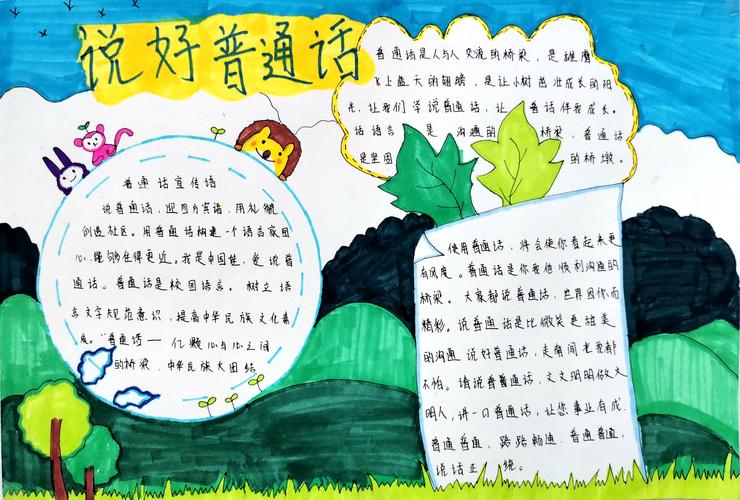 说好普通话
普通话是人与人交流的桥梁,是雄鹰
飞上蓝天的翅膀,是让小树茁壮成长的阳
光,让我们学说普通话,让 普话伴我成长。
话语言 是 沟通的 桥梁,普通话
是坚固 的桥墩。
普通话宣传语
说普通话,迎四方宾语,用礼貌
创造社区。用普通话构建一个语言家园
心,距够住得更近。我是中国娃,爱说普
通话。普通话是校园语言。树立语
言文字规范意识,提高中华民族文化素
质。"普通话—亿颗心与心之间
的桥梁、中华民族大团结
使用普通话,将会使你看起来更
有风度。普通话是你我他顺利沟通的
桥梁。大家都说普通话,世界因你而
精彩。说普通话是比微笑更甜美
的沟通说好普通话,走南闯北都
不怕。请说普普通话,文文明明做文
明人,讲一口普通话,让您事业有成.
普通普通,路路畅通.普通普通,
说话正 统。